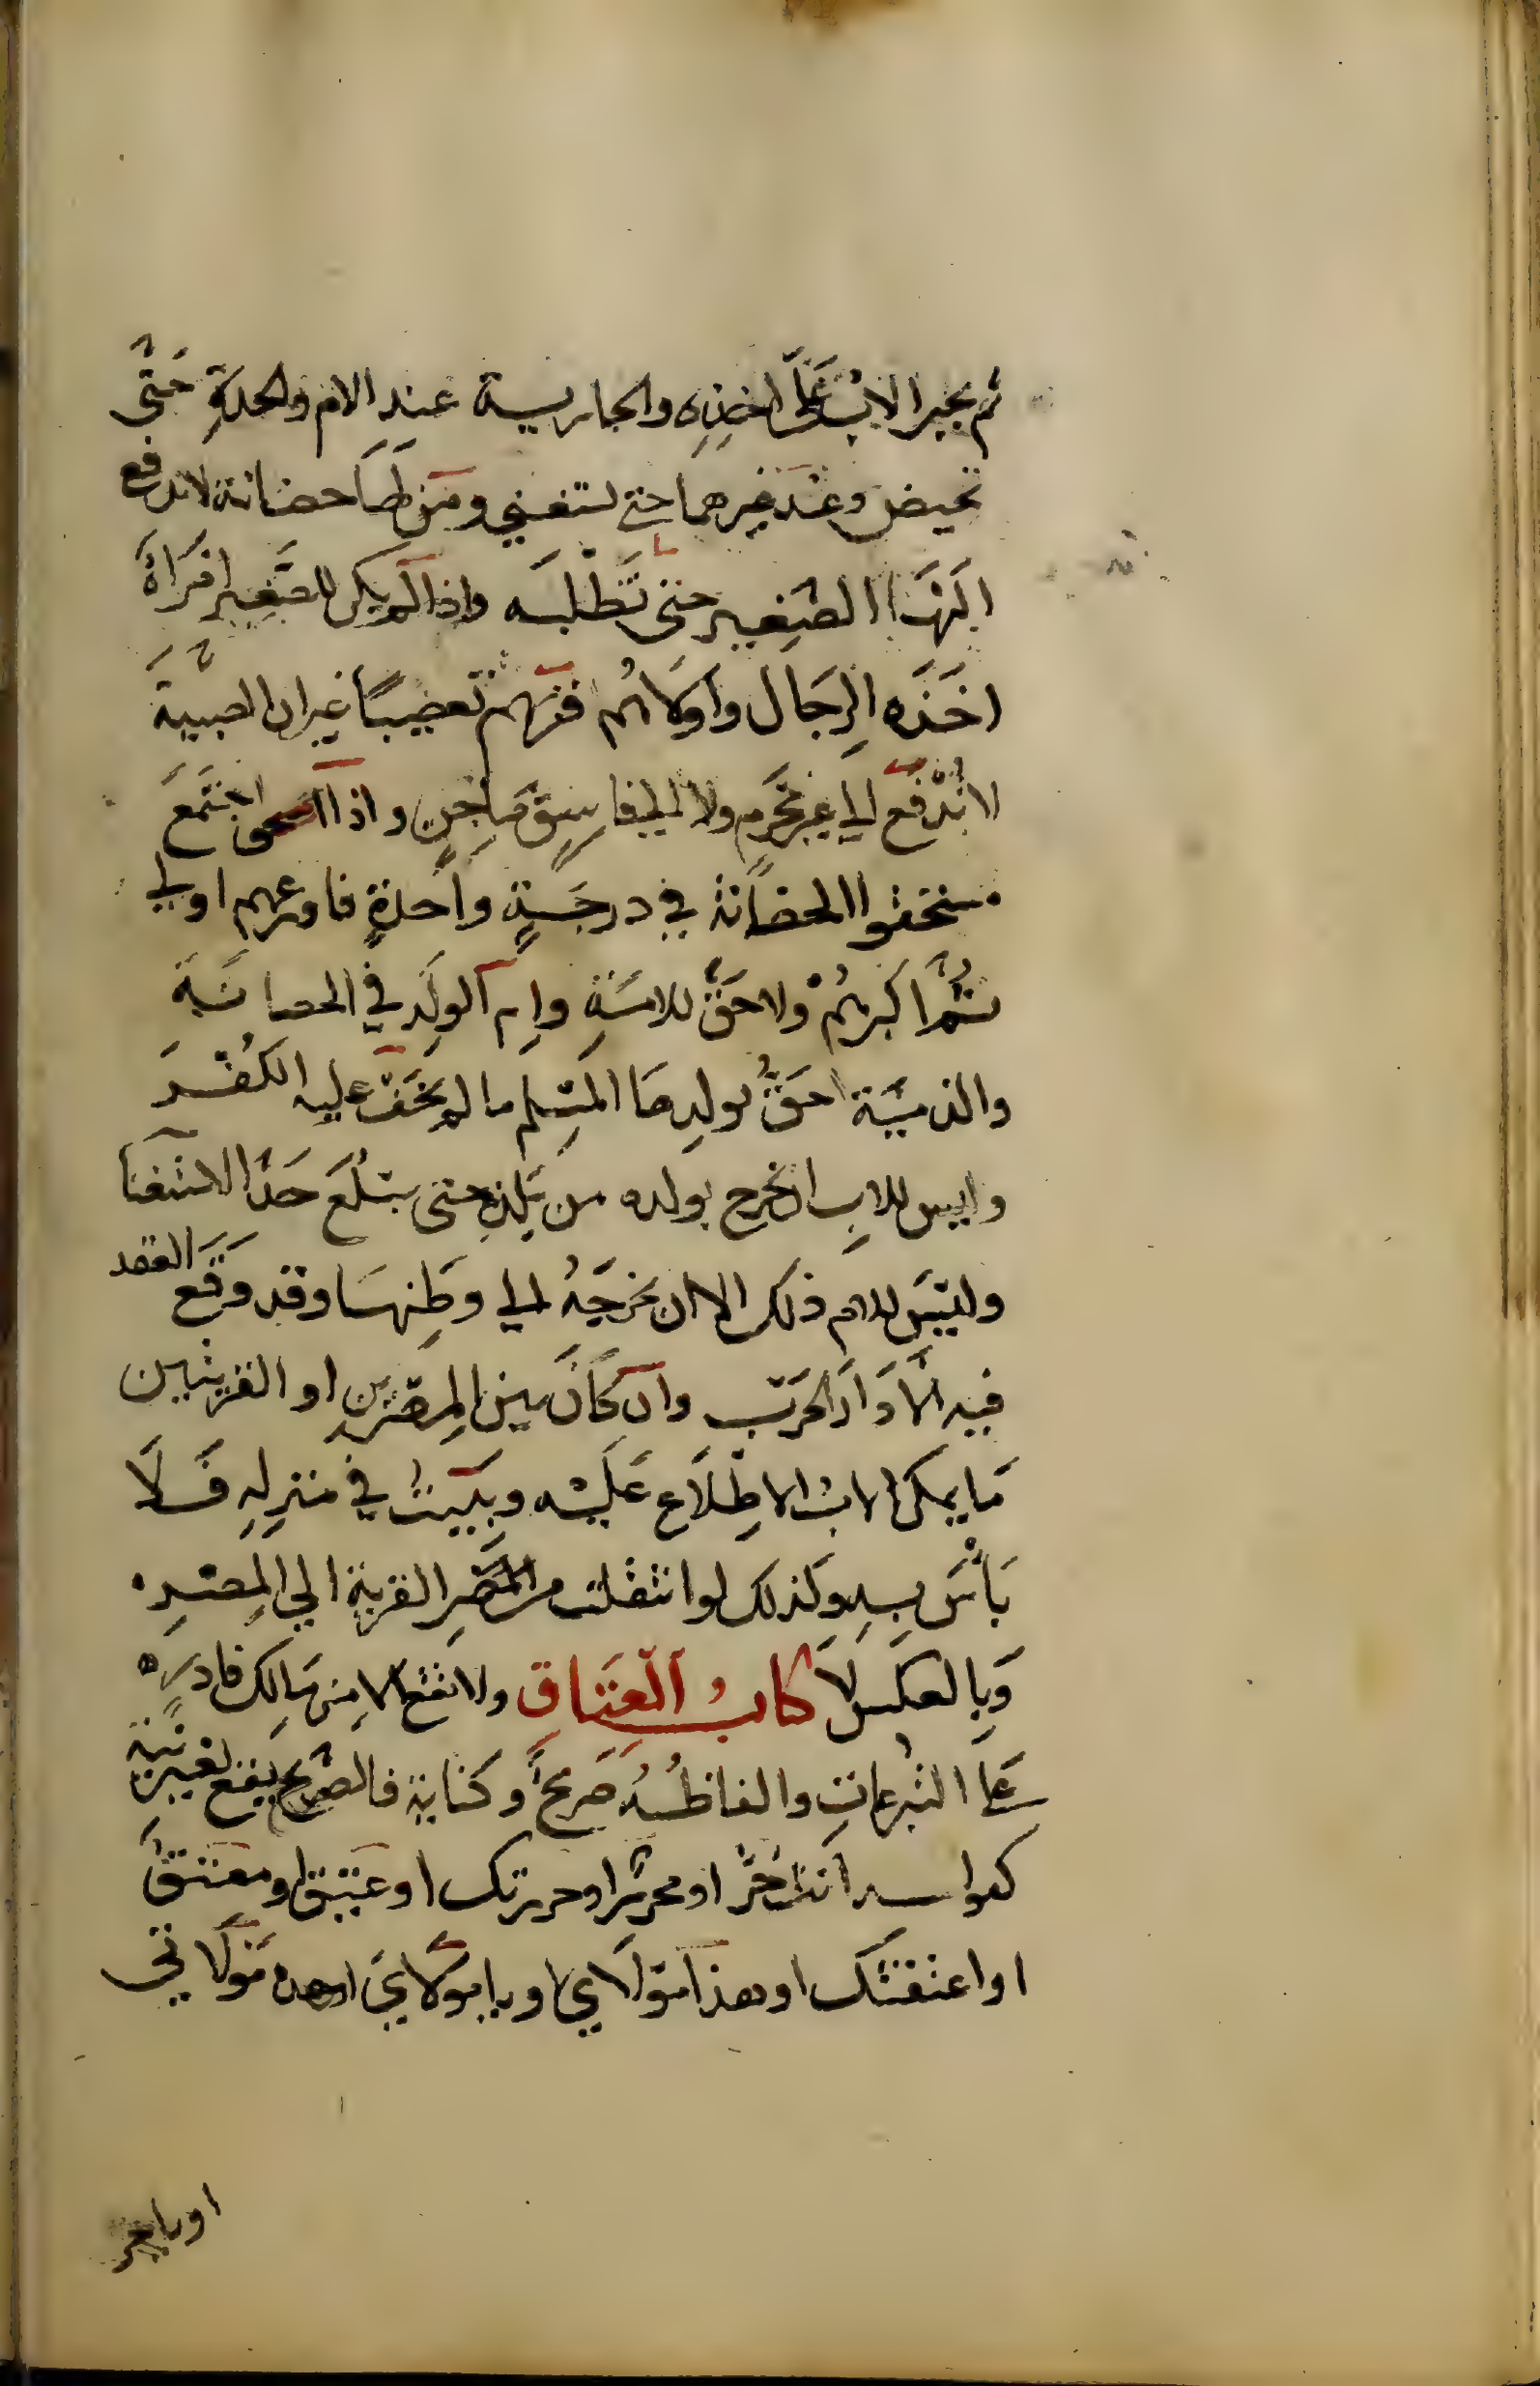 ثم يجبر الاب عَلَى اخذِهِ والجارية عند الام والجدةِ حَتَّى
تحيض وعِنْدَ غيرهما حتى تستغني ومَن لهَا حضانة لا تدفع
اليَهَا الصَّغِير حتى تَطْلبَه واذا لم يكن للصَّغِير امْرَاةٌ
اخَذَه الرِّجَال واوْلَاهُم اقربهم تعصِيبًا غير ان الصبيةَ
لا تُدْفَع الي غير مَحْرَمٍ ولا الي فاسِقٍ مَاجِنٍ واذا اجْتَمَعَ
مستحقوا الحضانة في درجَةٍ واحدةٍ فاورعهم اولي
ثُمَّ اكبرهُمْ ولا حَقَّ للامَةِ وامِ الولَدِ في الحضانَةِ
والذميَّة احَقُّ بولدِهَا المسْلِم ما لم يخَفْ عليه الكُفْرَ
وليس للابِ ان يخرج بولده من بَلدِهِ حتى يبْلُغَ حَدَّ الاستغنا
وليْسَ للام ذلك الا ان تخرجَهُ الي وطَنِهَا وقد وَقَعَ العقد
فيه الَّا دَارَ الحَرْبِ وان كَانَ بين المِصْرَينِ او القريتين
مَا يمكن الاب الاطِّلَاع عَلَيْه ويَبيتُ في منزِلِهِ فَلَا
بَأْسَ بِهِ وكَذلك لو انتقلت من القرية الي المِصْرِ
وَبِالعكس لَا كتابُ العِتَاقِ ولا تقع الا مِن مَالِكٍ قادرٍ
عَلَى التبرعاتِ والفاظُهُ صَريحٌ وكناية فالصَّرِيح يقع بغير نيةٍ
كقوله انتَ حُرٌّ او محرَّر او حررتك او عَتيق او معتَقٌ
او اعتقتك او هذا مَوْلَاي او يا مولايَ او هذه مَوْلَاتي
او يا حر